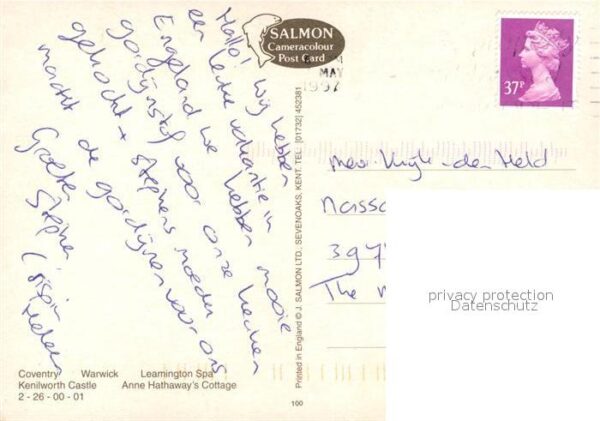 Hallo! Wij hebben
een leuke vakantie in
Engeland. We hebben mooie
gordijnstof voor onze keuken
gekocht + Stephens moeder
maakt de gordijnen voor ons
Groeten Stephen
Heleen
SALMON
Cameracolour
Post Card
MAY
1997
37P
Printed in England © J. SALMON LTD., SEVENOAKS, KENT. TEL: (01732) 452381
Mevr. der Held
Nassa
The
privacy protection
Datenschutz
Coventry Warwick Leamington Spa
Kenilworth Castle Anne Hathaway's Cottage
2 - 26 - 00 - 01
100